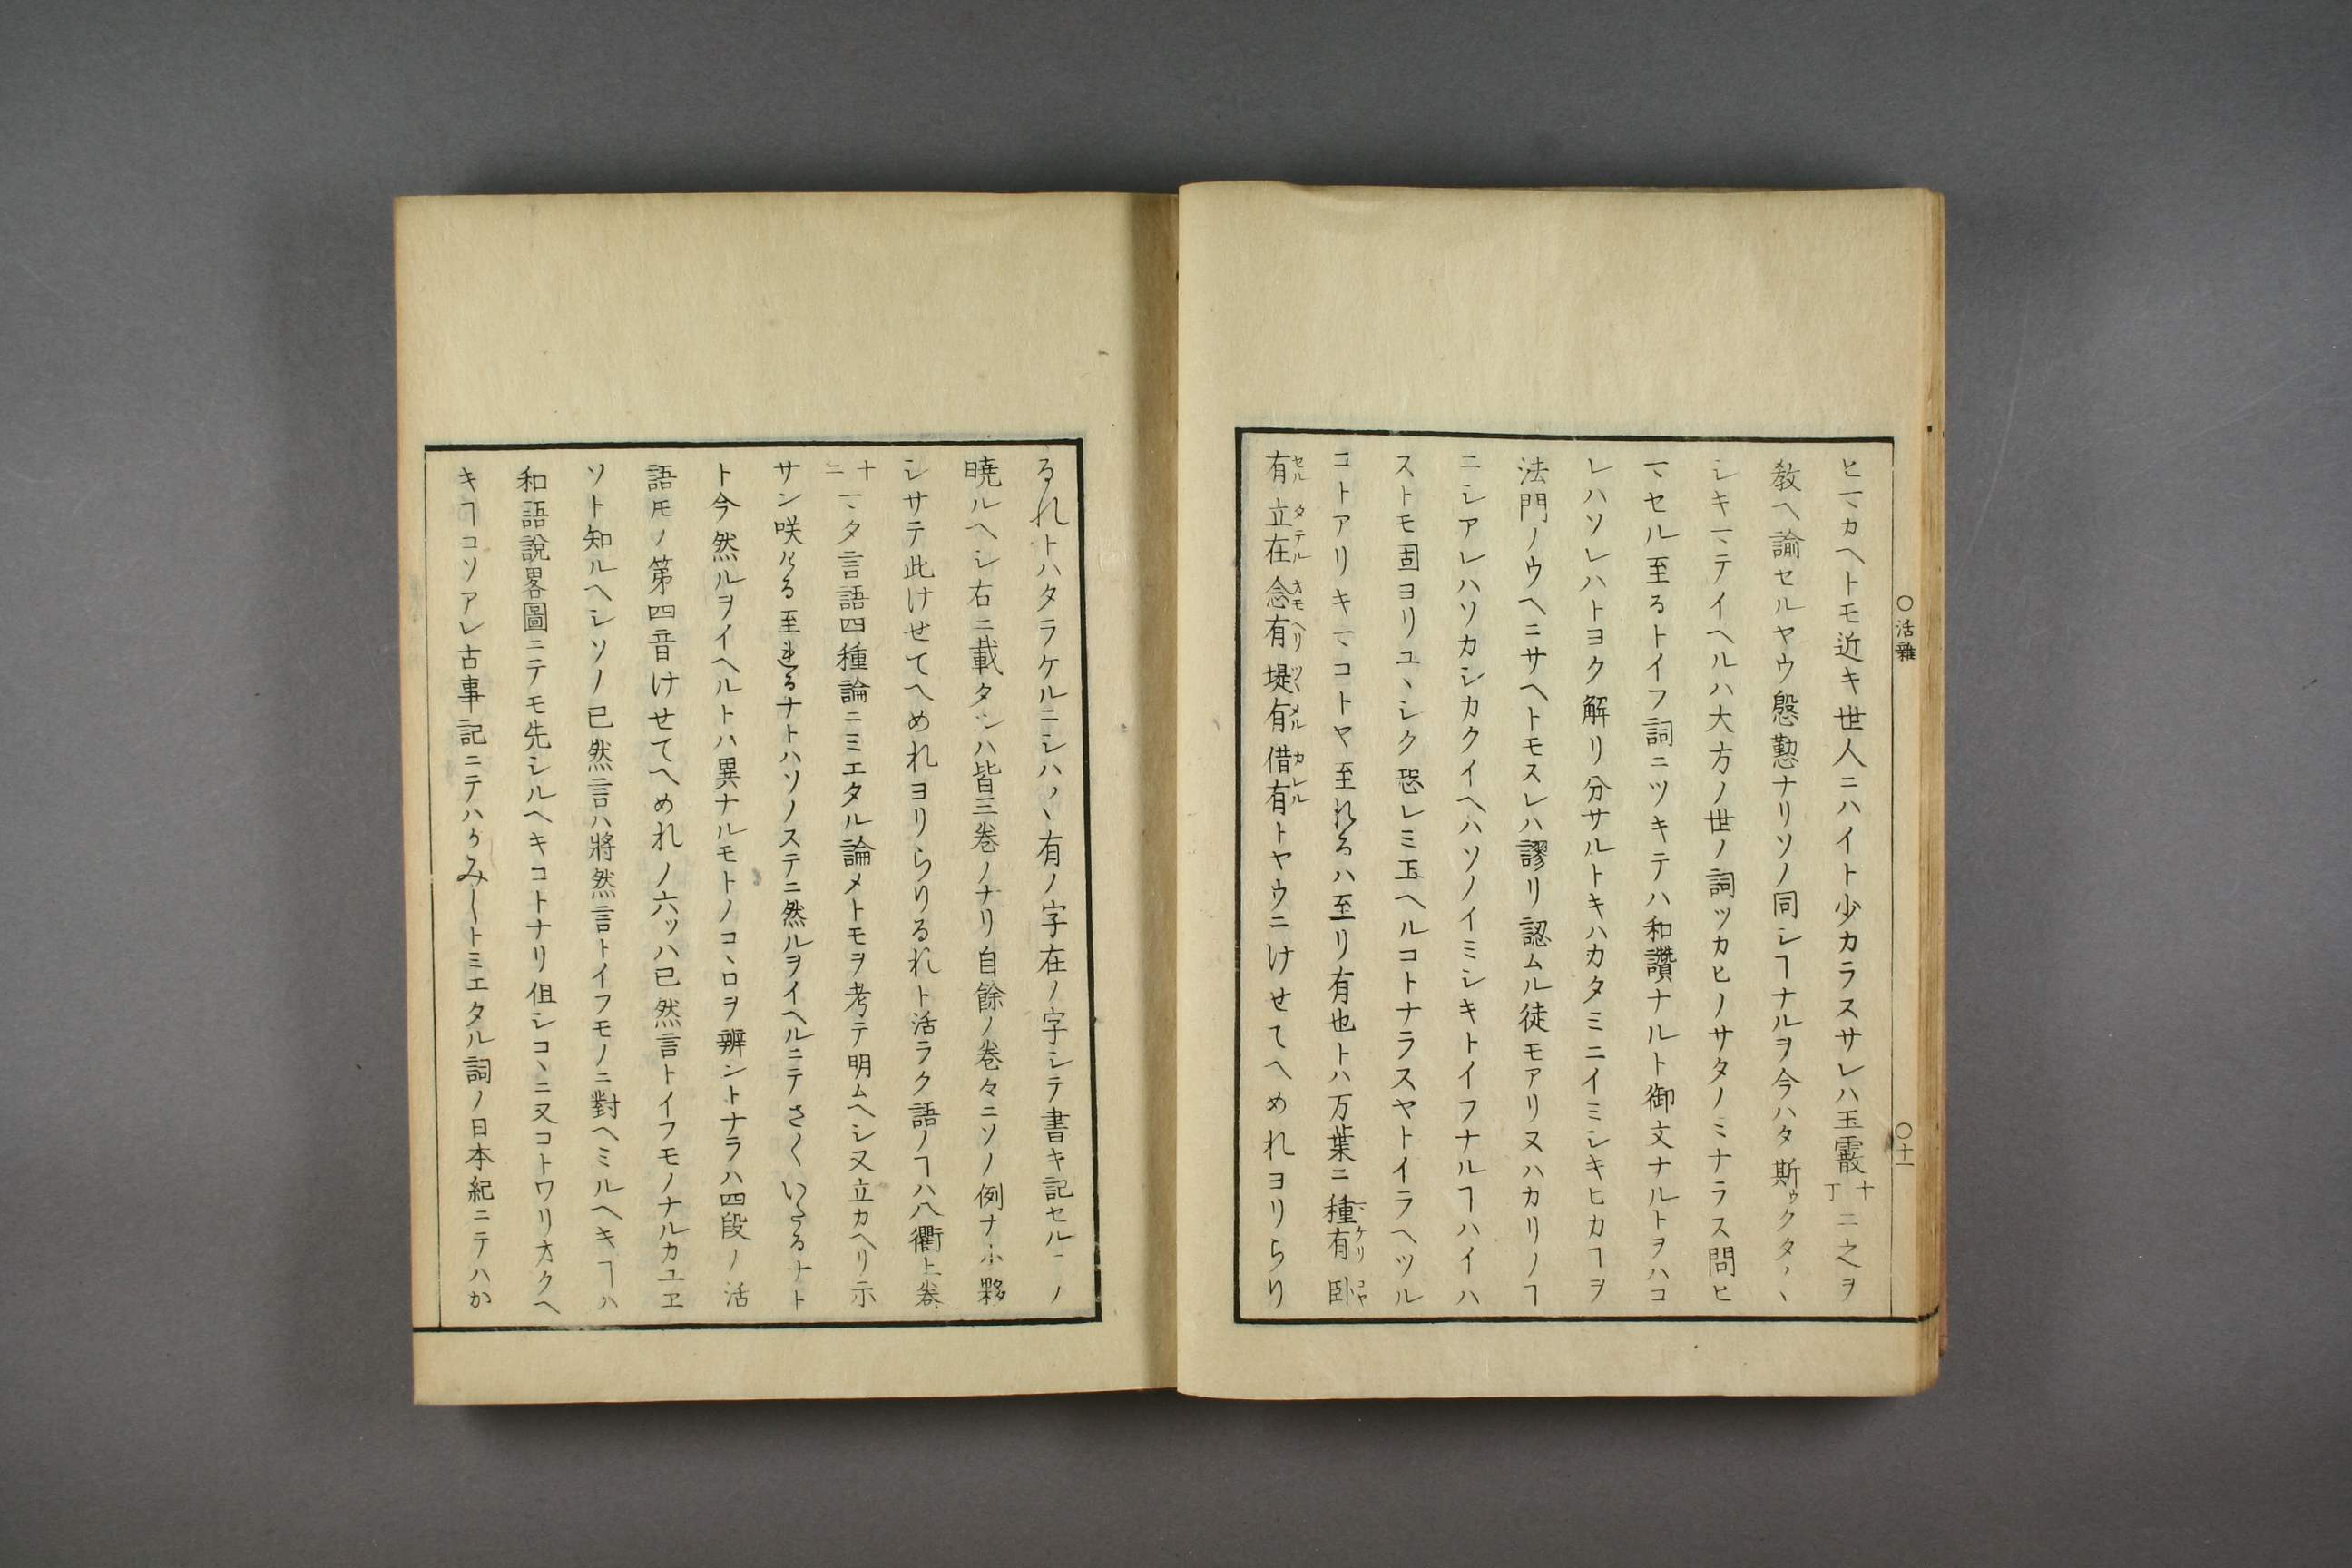 ○活雜
○十一
ヒマカヘトモ近キ世人ニハイト少カラスサレハ玉霰十丁ニ之ヲ
教ヘ諭セルヤウ慇懃ナリソノ同シヿナルヲ今ハタ斯ゥクタヽヽ
シキマテイヘルハ大方ノ世ノ詞ツカヒノサタノミナラス問ヒ
マセル至るトイフ詞ニツキテハ和讚ナルト御文ナルトヲハコ
レハソレハトヨク解リ分サルトキハカタミニイミシキヒカヿヲ
法門ノウヘニサヘトモスレハ謬リ認ムル徒モアリヌハカリノヿ
ニシアレハソカシカクイヘハソノイミシキトイフナルヿハイハ
ストモ固ヨリユヽシク恐レミ玉ヘルコトナラスヤトイラヘツル
コトアリキマコトヤ至れるハ至リ有也トハ万葉ニ種有マケリ臥コヤ
有セル立在タテル念有オモヘリ堤有ツヽメル借有カレルトヤウニけせてへめれヨリらり
るれトハタラケルニシハヽヽ有ノ字在ノ字シテ書キ記セルニノ
曉ルヘシ右ニ載タルハ皆三卷ノナリ自餘ノ卷々ニソノ例ナホ夥
シサテ此けせてへめれヨリらりるれト活ラク語ノヿハ八衢上卷
十ニマタ言語四種論ニミエタル論メトモヲ考テ明ムヘシ又立カヘリ示
サン咲ける至れるナトハソノステニ然ルヲイヘルニテさくいたるナト
ト今然ルヲイヘルトハ異ナルモトノコヽロヲ辨ントナラハ四段ノ活
語𪜈ノ第四音けせてへめれノ六ツハ已然言トイフモノナルカユヱ
ソト知ルヘシソノ已然言ハ將然言トイフモノニ對ヘミルヘキヿハ
和語說畧圖ニテモ先シルヘキコトナリ但シコヽニ又コトワリオクヘ
キヿコソアレ古事記ニテハかみ〳〵トミエタル詞ノ日本紀ニテハか